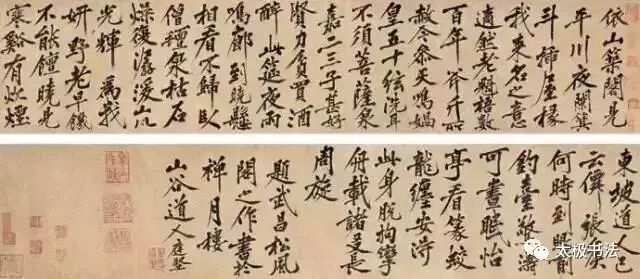 依山築閣見
平川夜闌箕
斗插屋椽
我來名之意
適然老魁梧數
百年斧斤所
赦今參天鳴媧
皇五十絃洗耳
不須菩薩泉
嘉二三子甚好
賢力貧買酒
醉此筵夜雨
鳴廊到曉懸
相看不歸臥
僧氊泉枯石
燥復潺湲山川
光輝為我
妍野老早饑
不能饘曉見
寒谿有炊煙
東坡道
張
何時到眼前
釣臺驚濤
可晝眠怡
亭看篆蛟
龍纏安得
此身脫拘攣
舟載諸友長
周旋
題武昌松風
閣之作書於
禪月樓
山谷道人庭堅
太极书法